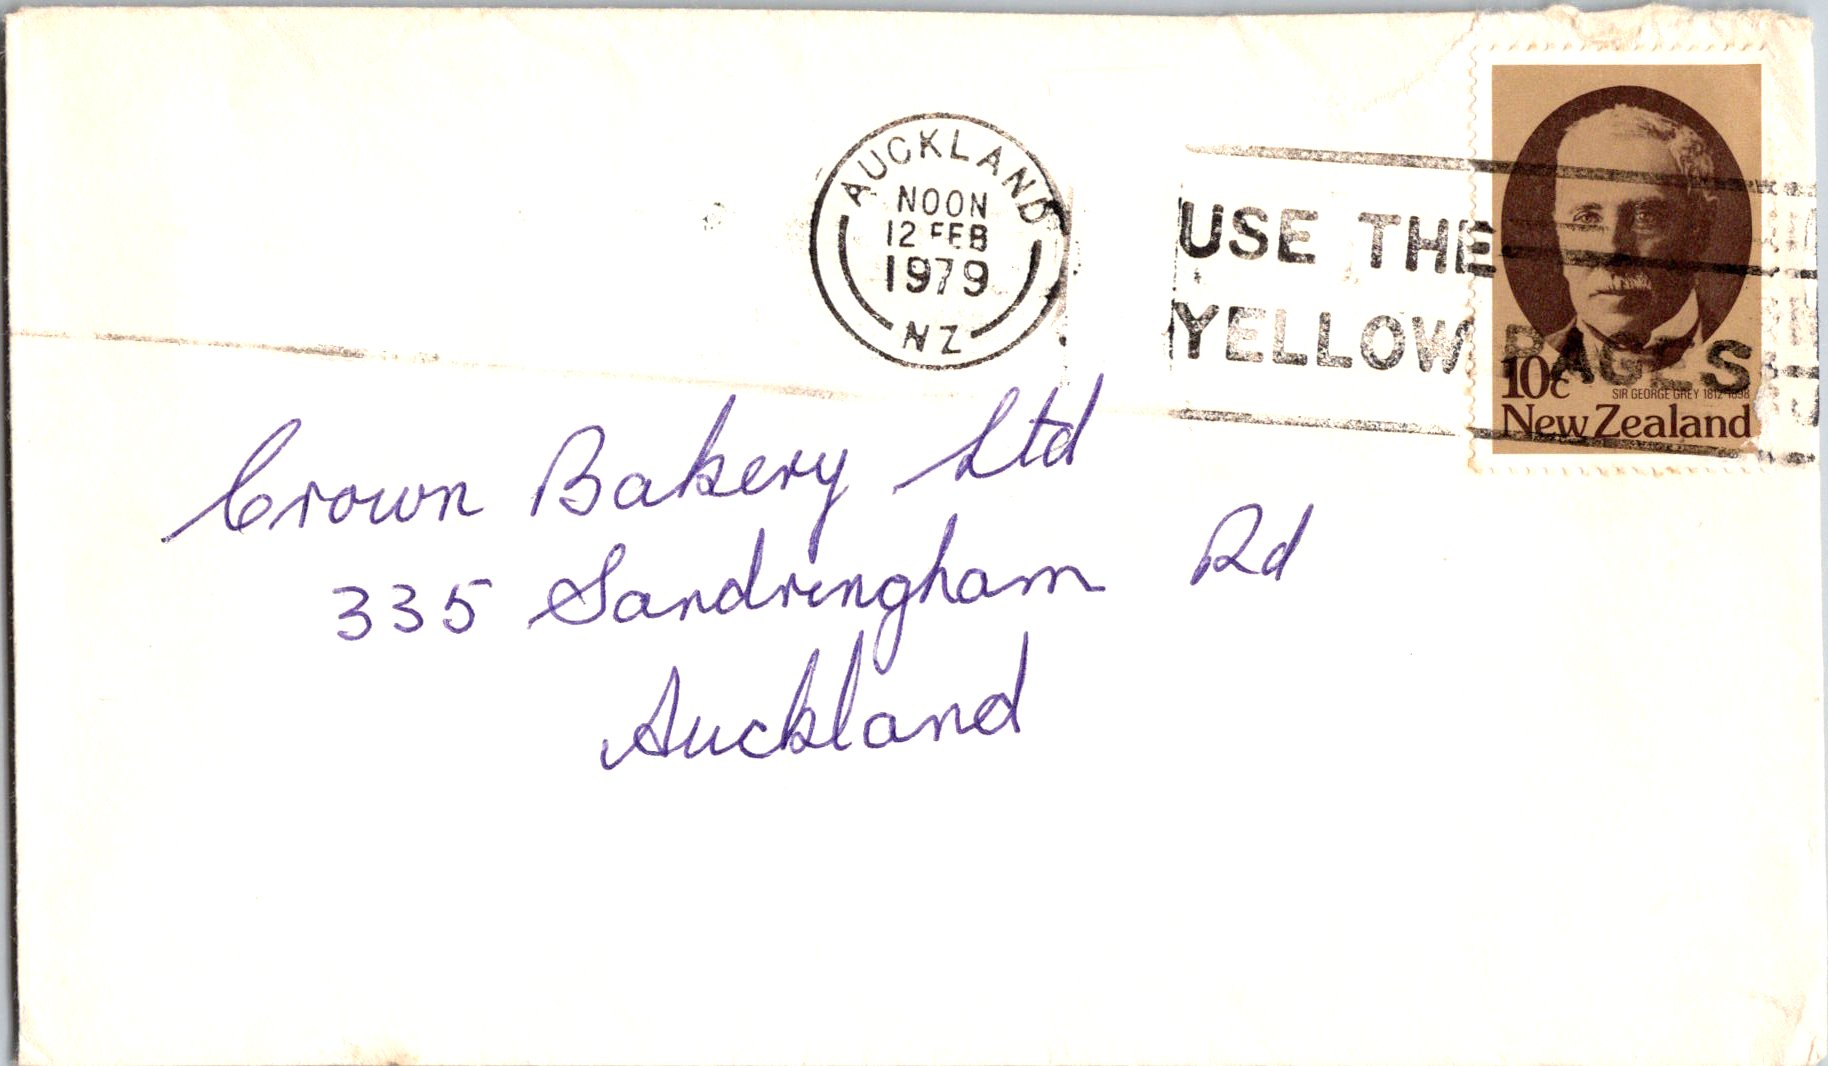 AUCKLAND
NOON
12 FEB
1979
NZ
USE THE
YELLOW PAGES
10c
SIR GEORGE GREY 1812-1898
New Zealand
Crown Bakery Ltd
335 Sandringham Rd
Auckland